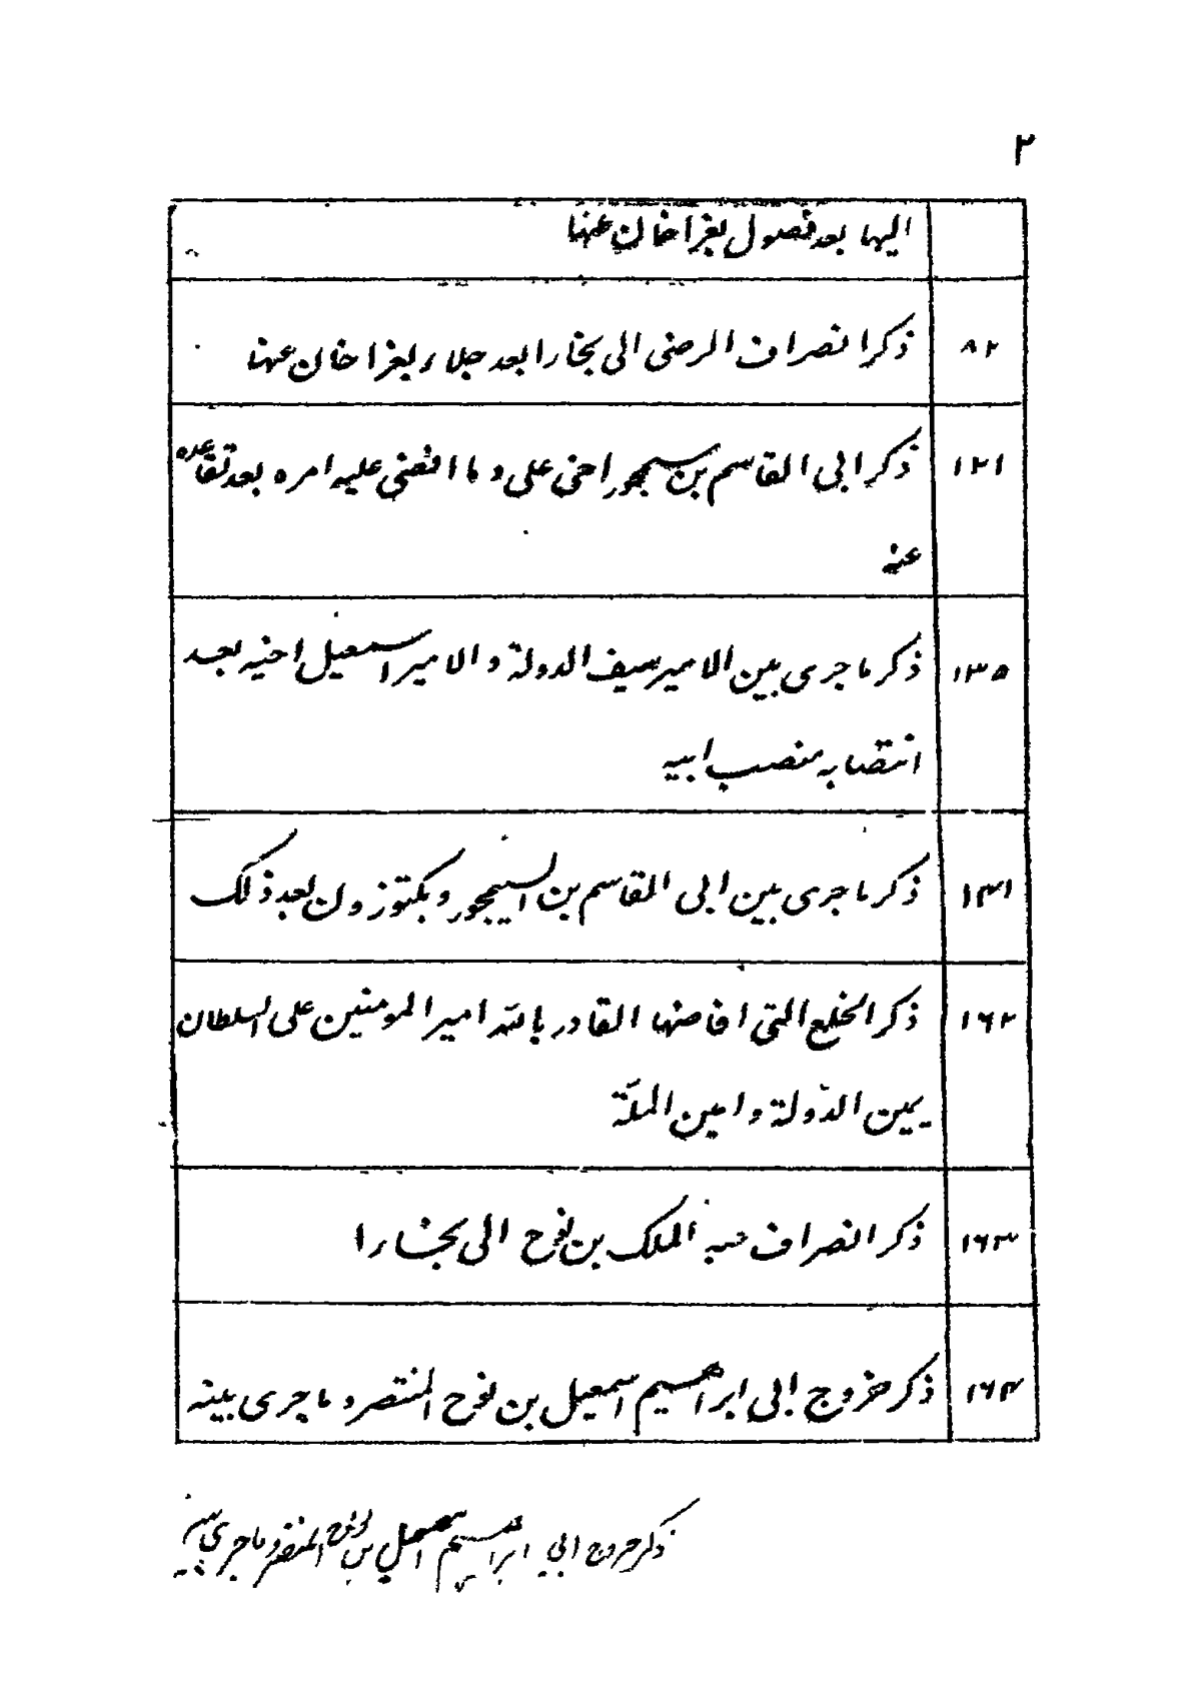 ٢
اليها بعد فصول بغرا خان عنها
٨٢ ذكر انصراف الرضى الى بخارا بعد جلاء بغرا خان عنها
١٢١ ذكر ابى القاسم بن سيمجور اخى على و ما افضى عليه امره بعد تقاعده
عنه
١٣٥ ذكر ما جرى بين الامير سيف الدولة و الامير اسمعيل اخيه بعد
انتصابه منصب ابيه
١٤١ ذكر ما جرى بين ابى القاسم بن السيمجور و بكتوزون بعد ذلك
١٦٢ ذكر الخلع التى افاضها القادر بالله امير المومنين على السلطان
يمين الدّولة و امين الملّة
١٦٣ ذكر انصراف عبد الملك بن نوح الى بخارا
١٦٤ ذكر خروج ابى ابراهيم اسمعيل بن نوح المنتصر و ما جرى بينه
ذكر خروج ابي ابراهيم اسمعيل بن نوح المنتصر و ما جرى بينه